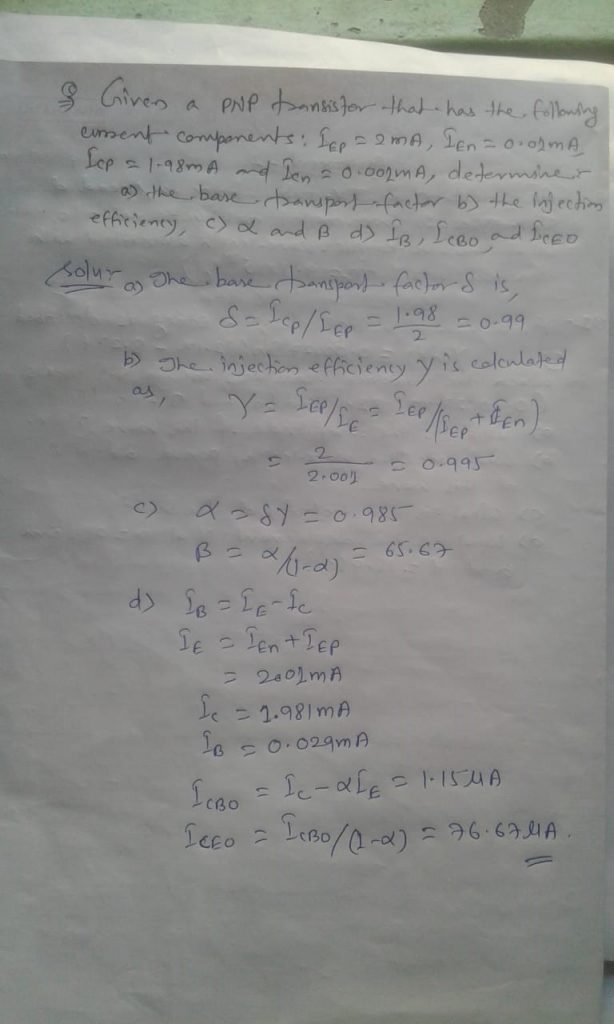 Q Given a PNP transistor that has the following
current components: IEp = 2mA, IEn = 0.01mA
Icp = 1.98mA and Icn = 0.001mA, determine:
a) the base transport factor b) the injection
efficiency, c) α and β d) IB, ICBO and ICEO
Solu: a) The base transport factor δ is,
δ = Icp/IEp = 1.98/2 = 0.99
b) The injection efficiency γ is calculated
as, γ = IEp/IE = IEp/(IEp + IEn)
= 2/2.001 = 0.995
c) α = δγ = 0.985
β = α/(1-α) = 65.67
d) IB = IE - Ic
IE = IEn + IEp
= 2.01mA
Ic = 1.981mA
IB = 0.029mA
ICBO = Ic - αIE = 1.15μA
ICEO = ICBO/(1-α) = 76.67μA.